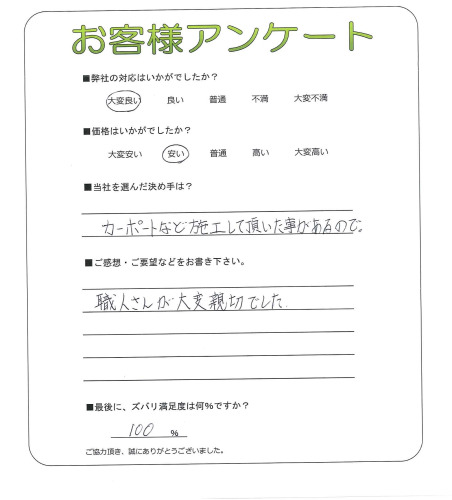 お客様アンケート
■弊社の対応はいかがでしたか?
大変良い 良い 普通 不満 大変不満
■価格はいかがでしたか?
大変安い 安い 普通 高い 大変高い
■当社を選んだ決め手は?
カーポートなど施工して頂いた事があるので。
■ご感想・ご要望などをお書き下さい。
職人さんが大変親切でした
■最後に、ズバリ満足度は何%ですか?
100 %
ご協力頂き、誠にありがとうございました。